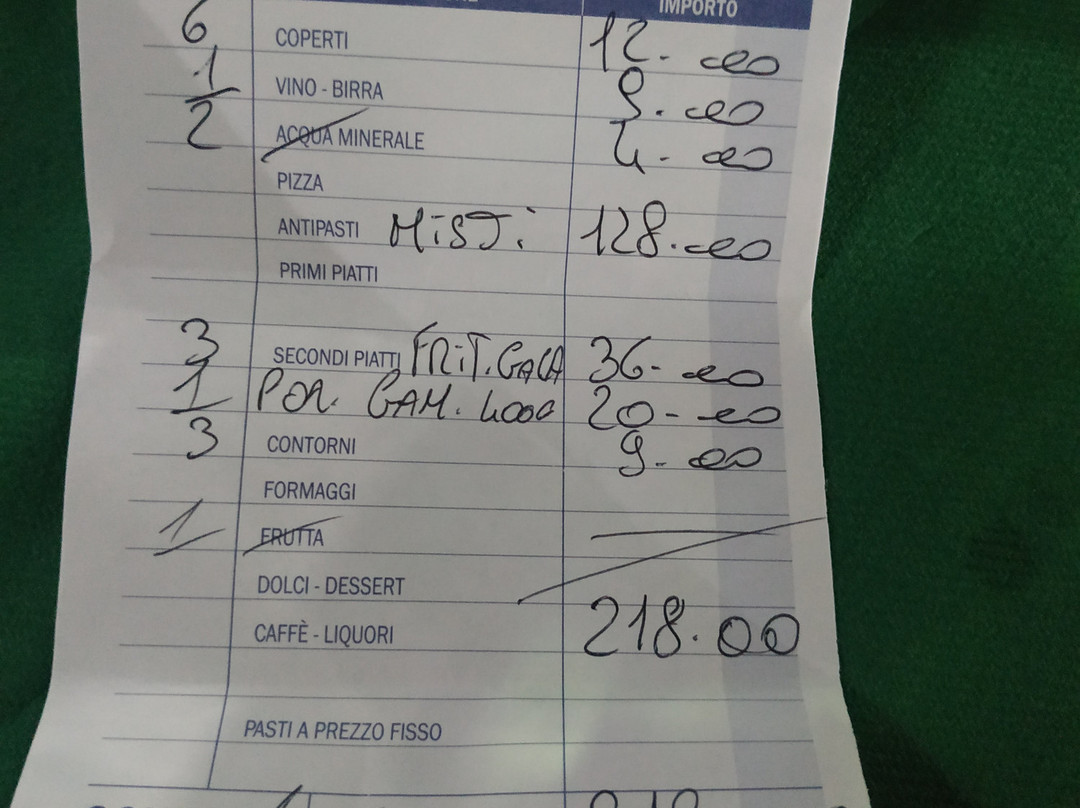 IMPORTO
6 COPERTI 12.00
1 VINO - BIRRA 9.00
2 ACQUA MINERALE 4.00
PIZZA
ANTIPASTI MISTI 128.00
PRIMI PIATTI
3 SECONDI PIATTI FRIT. 36-00
1 POR. GAM. 20-00
3 CONTORNI 9-00
FORMAGGI
1 FRUTTA
DOLCI - DESSERT
CAFFÈ - LIQUORI 218.00
PASTI A PREZZO FISSO